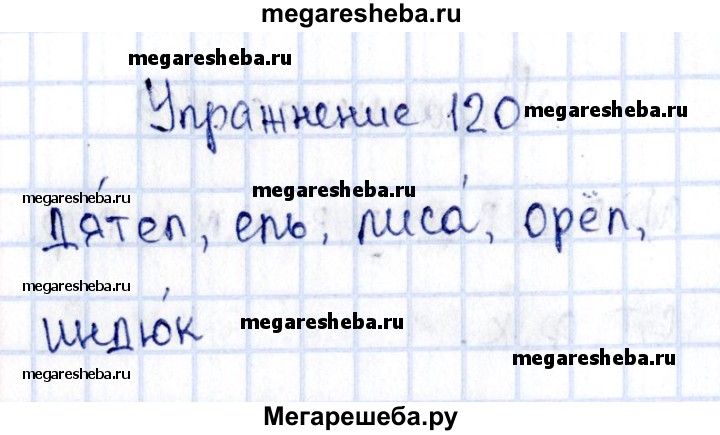 megaresheba.ru
megaresheba.ru
Упражнение 120
megaresheba.ru
megaresheba.ru
megaresheba.ru
дя́тел, ель, лиса́, орёл,
megaresheba.ru
индю́к
megaresheba.ru
megaresheba.ru
Мегарешеба.ру